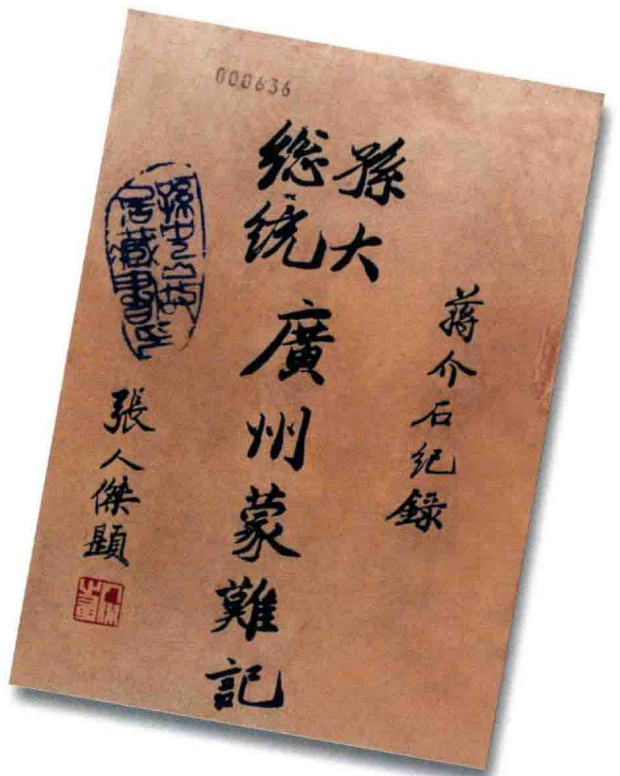 000636
蔣介石紀錄
孫大
総統
廣州蒙難記
孫中山故
居藏書印
張人傑題